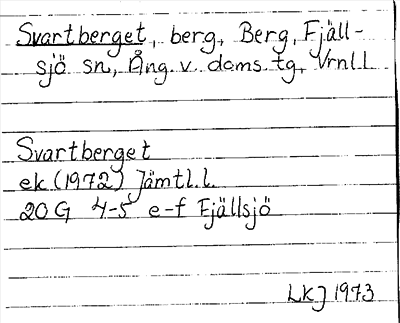 Svartberget, berg, Berg, Fjäll-
sjö sn, Ång. v. doms. tg, Vrnl.l
Svartberget
ek (1972) Jämtl.l.
20 G 4-5 e-f Fjällsjö
LKJ 1973